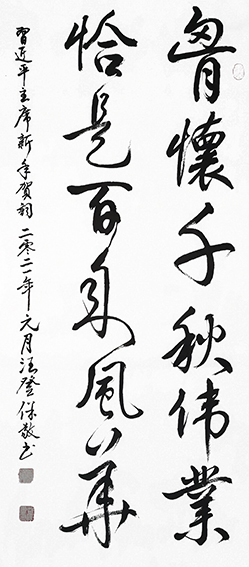 胷懷千秋伟業
恰是百年風華
習近平主席新年賀詞 二零二一年元月汪登保敬书